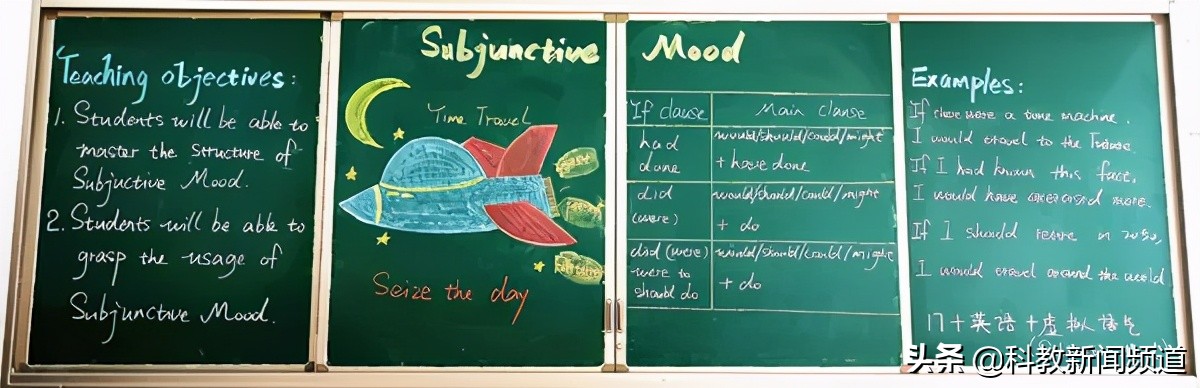 Teaching objectives:
1. Students will be able to
master the structure of
Subjuctive Mood.
2. Students will be able to
grasp the usage of
Subjunctive Mood.
Subjunctive Mood
Time Travel
Past
Future
Seize the day
If clause Main clause
had done would/should/could/might + have done
did (were) would/should/could/might + do
did (were) were to should do would/should/could/might + do
Examples:
If there were a time machine,
I would travel to the
If I had known this fact,
I would have exercised more.
If I should retire in 2050,
I would travel around the world
17+英语+虚拟语气
头条 @科教新闻频道